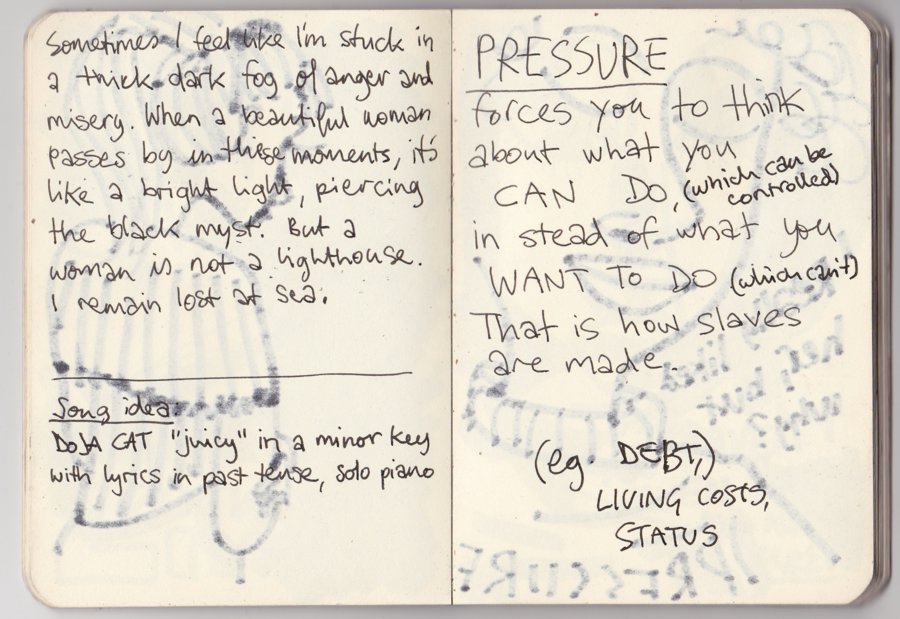 Sometimes I feel like I'm stuck in
a thick dark fog of anger and
misery. When a beautiful woman
passes by in these moments, it's
like a bright light, piercing
the black myst. But a
woman is not a lighthouse.
I remain lost at sea.
Song idea:
DOJA CAT "juicy" in a minor key
with lyrics in past tense, solo piano
PRESSURE
forces you to think
about what you
CAN DO, (which can be
controlled)
in stead of what you
WANT TO DO (which can't)
That is how slaves
are made.
(eg. DEBT,)
LIVING COSTS,
STATUS
really liked
her, but
why?
PRESSURE